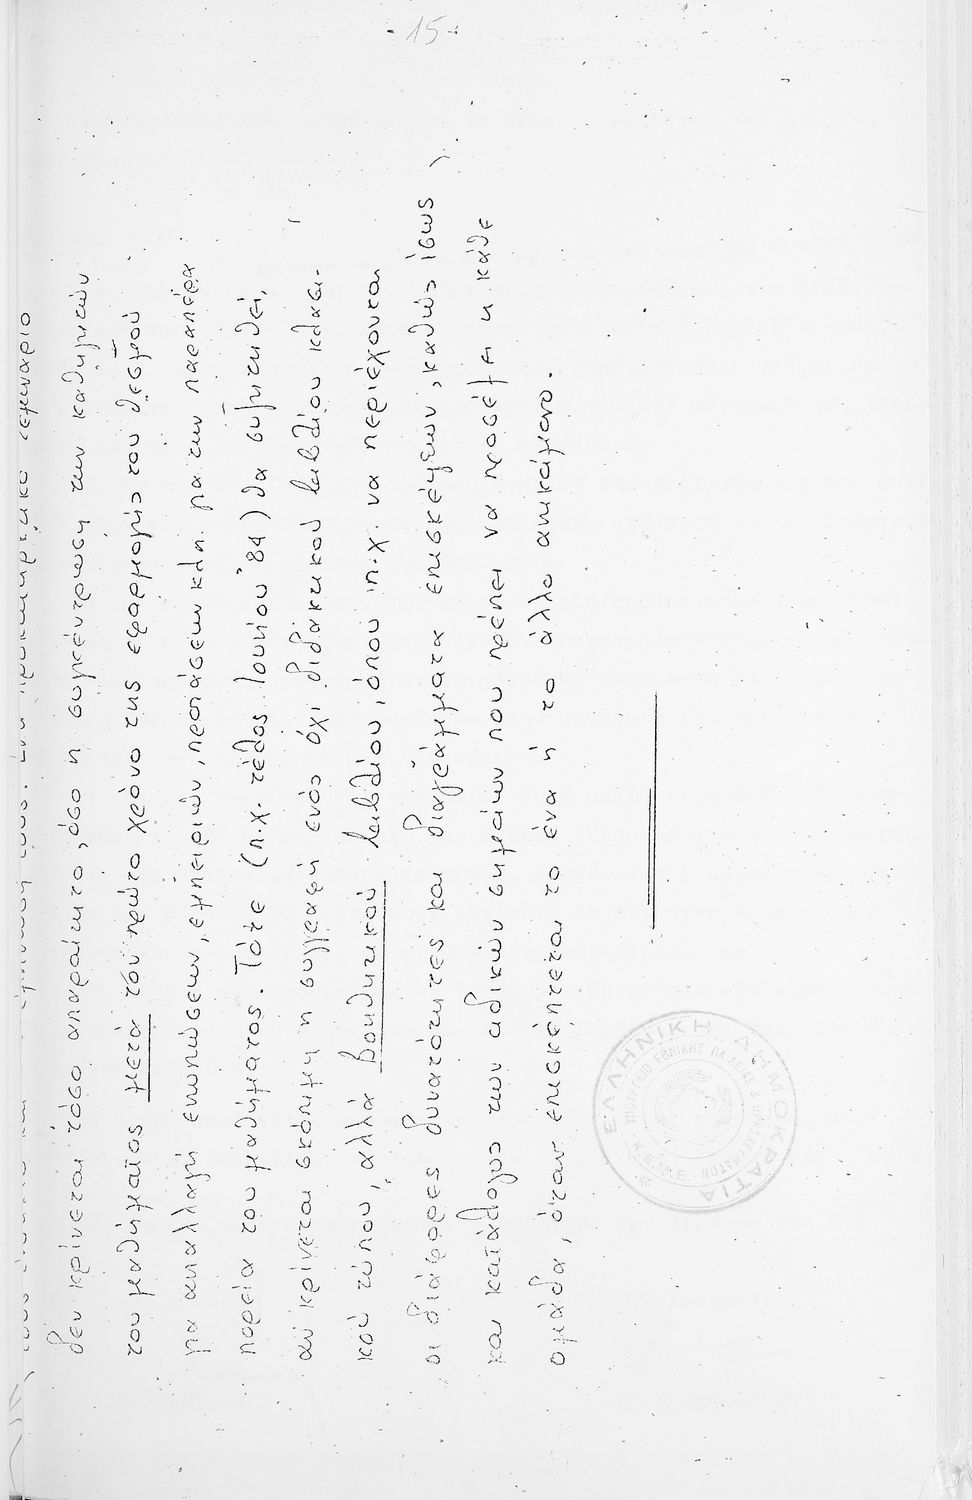 -15-
ένα προκαταρκτικό σεμινάριο
δεν κρίνεται τόσο απαραίτητο, όσο η συγκέντρωση των καθηγητών
του μαθήματος μετά τον πρώτο χρόνο της εφαρμογής του θεσμού
για ανταλλαγή εντυπώσεων, εμπειριών, προτάσεων κλπ. για την παραπέρα
πορεία του μαθήματος. Τότε (π.χ. τέλος Ιουνίου '84) θα συζητηθεί,
αν κρίνεται σκόπιμη η συγγραφή ενός όχι διδακτικού βιβλίου κλασι-
κού τύπου, αλλά βοηθητικού βιβλίου, όπου π.χ να περιέχονται
οι διάφορες δυνατότητες και διαγράμματα επισκέψεων, καθώς ίσως
και κατάλογος των ειδικών σημείων που πρέπει να προσέξει η κάθε
ομάδα, όταν επισκέπτεται το ένα ή το άλλο αντικείμενο.
ΕΛΛΗΝΙΚΗ ΔΗΜΟΚΡΑΤΙΑ
ΥΠΟΥΡΓΕΙΟ ΕΘΝΙΚΗΣ ΠΑΙΔΕΙΑΣ & ΘΡΗΣΚΕΥΜΑΤΩΝ
Κ.Ε.Μ.Ε.